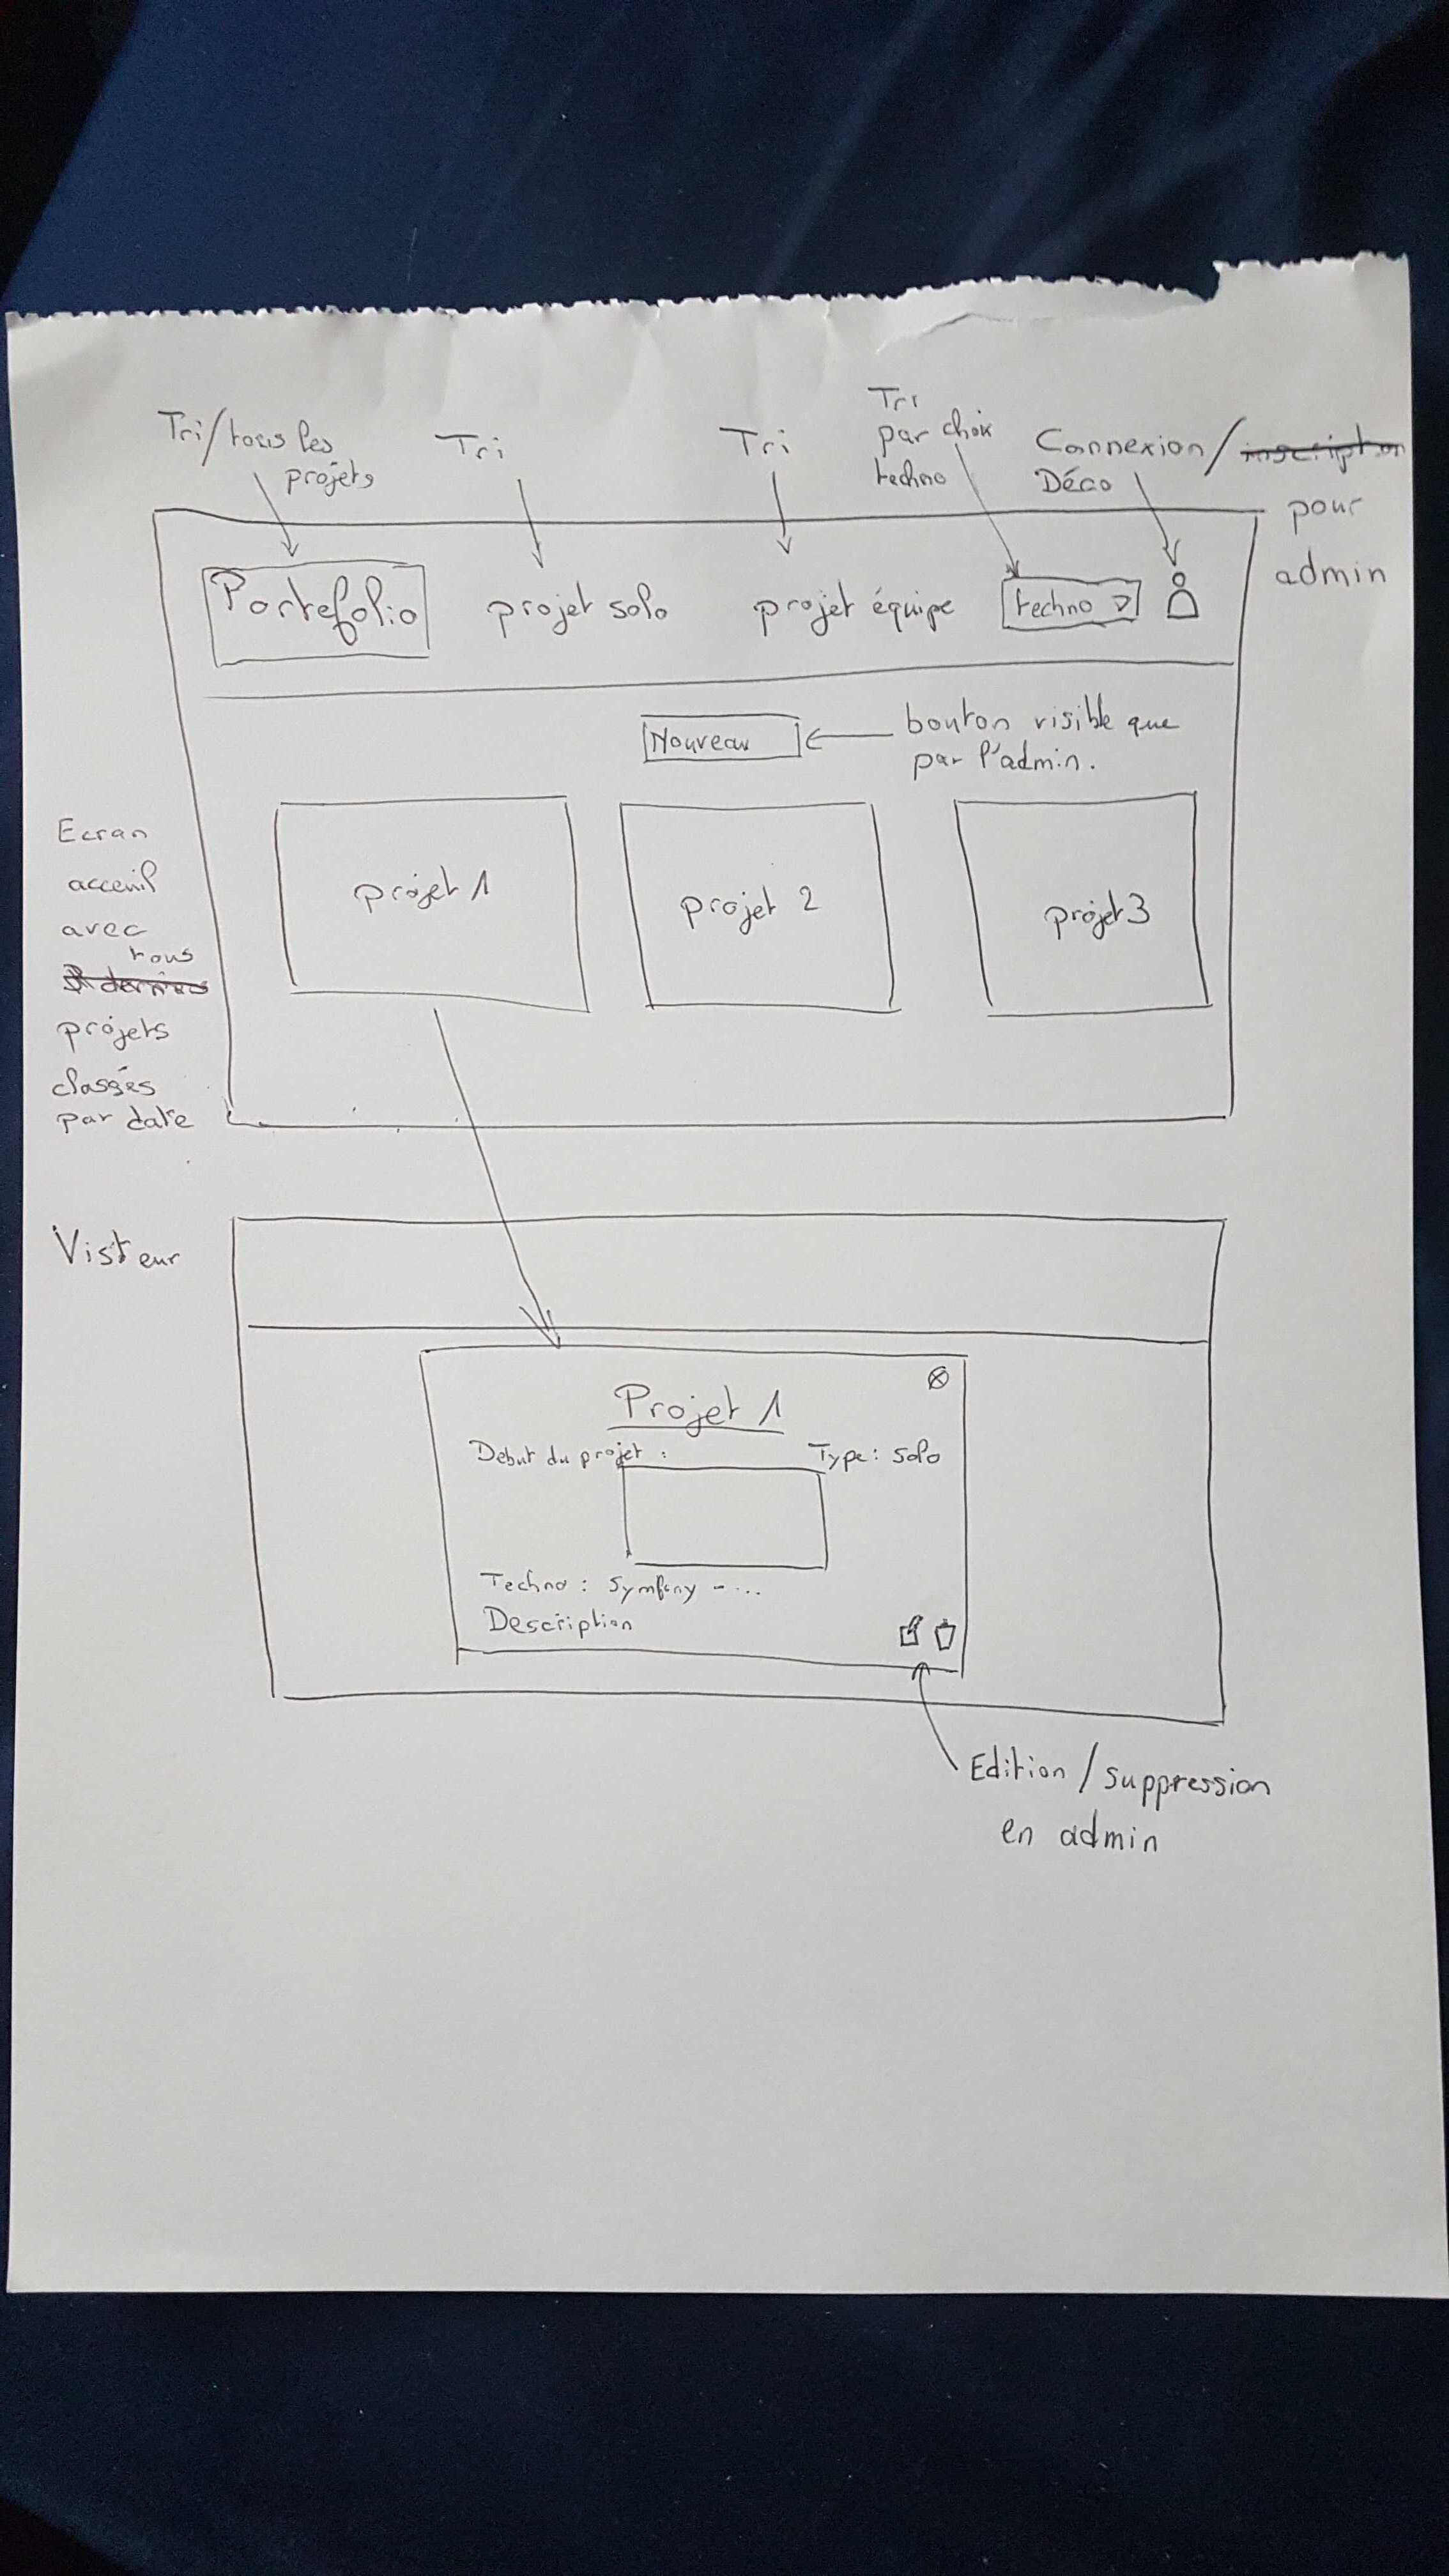 Tri/tous les
projets
Tri
Tri
Tri
par choix
techno
Connexion/inscription
Déco
pour
admin
Portefolio
projet solo
projet équipe
techno
Nouveau
bouton visible que
par l'admin.
projet 1
projet 2
projet 3
Ecran
acceuil
avec
tous
projets
classés
par date
Visteur
Projet 1
Debut du projet :
Type : solo
Techno : Symfony - ...
Description
Edition / suppression
en admin